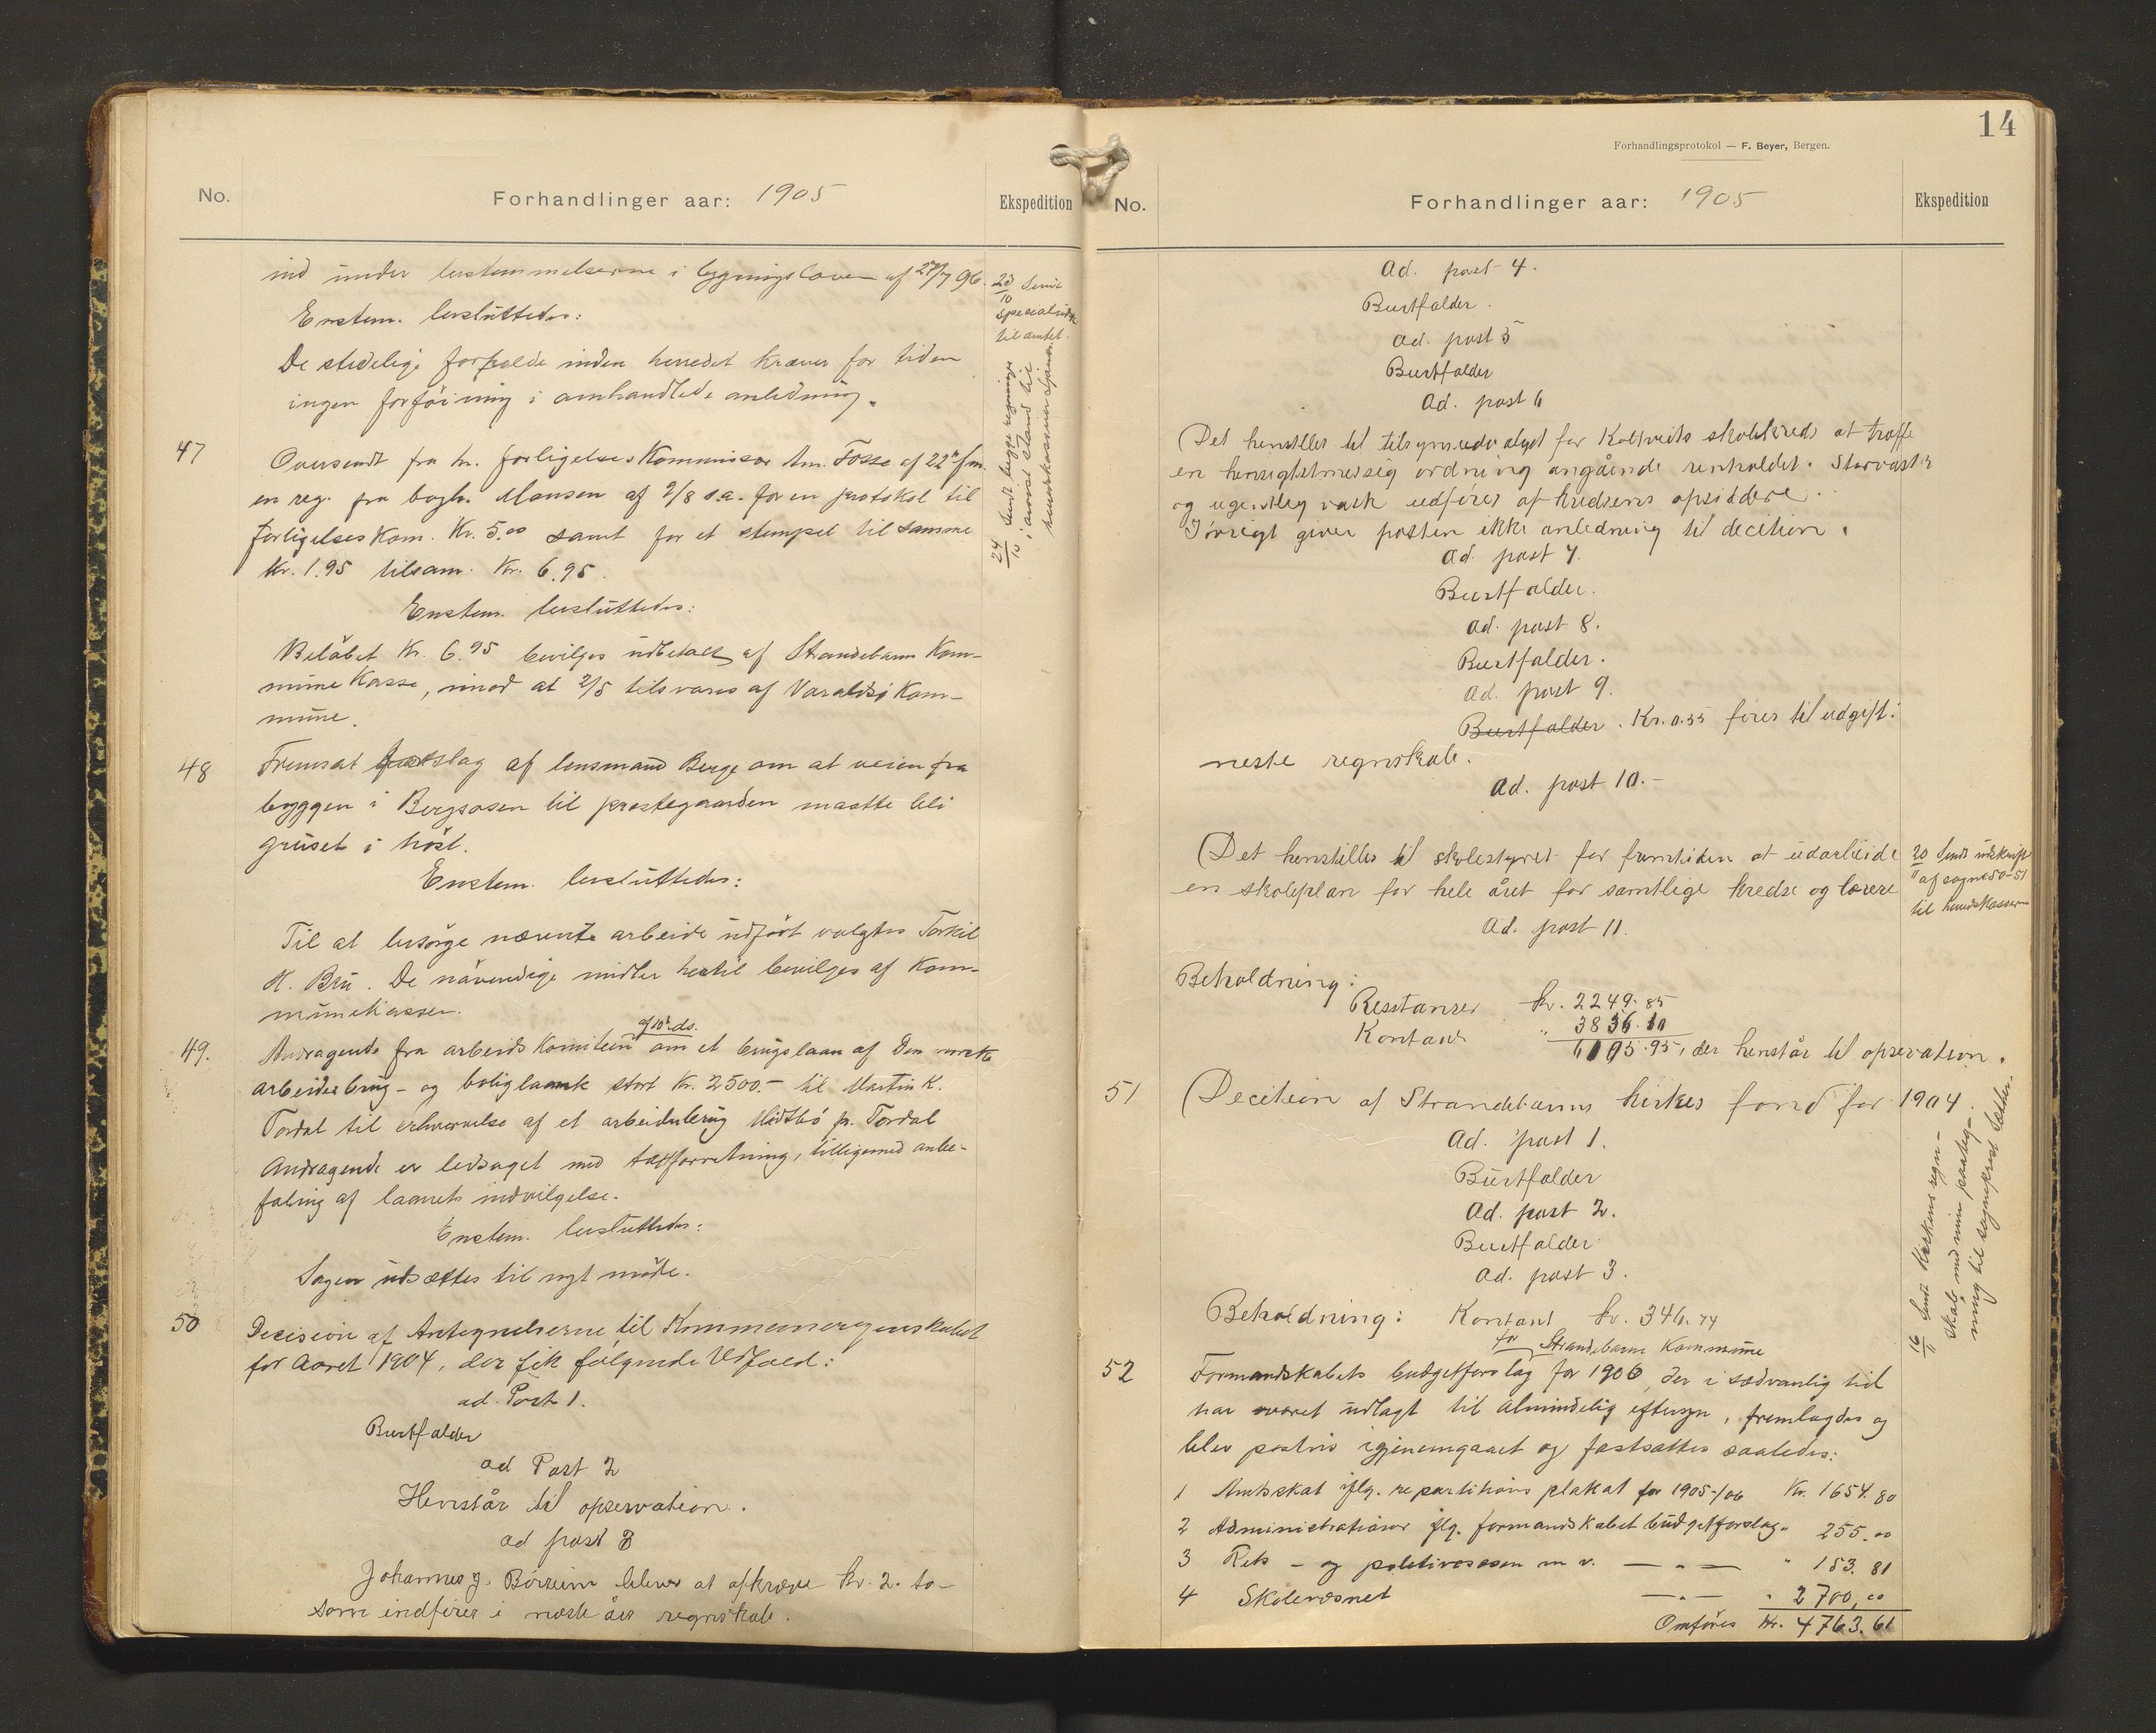 No.
Forhandlinger aar: 1905
Ekspedition
ind under bestemmelserne i bygningsloven af 27/7 96.
Enstem. besluttedes:
De stedelige forholde inden herredet kræver for tiden
ingen forföining i omhandlede anledning.
23/10 Sendt
specialudsk.
til amtet.
24/10 Sendt begge regninger
, anvist stand til
47
Oversendt fra hr. forligelseskommissær Am. Fosse af 22de f.m.
en reg. fra bogh. Monsen af 9/8 d.a. for en protokol til
forligelseskom. Kr. 5.00 samt for et stempel til samme
Kr. 1.95 tilsam. Kr. 6.95.
Enstem. besluttedes:
Belöbet Kr. 6.95 bevilges udbetalt af Strandebarm Kom-
mune Kasse, imod at 2/5 tilsvares af Varaldsö Kom-
mune.
48
Fremsat forslag af lensmand Berge om at veien fra
bryggen i Bergsosen til prestegaarden maatte bli
gruset i höst.
Enstem. besluttedes:
Til at besörge nævnte arbeide udfört valgtes Torkil
K. Bru. De növendige midler hertil bevilges af Kom-
munekassen.
49.
Andragende fra arbeidskomiteen af 10de ds. om et brugslaan af Den norske
arbeiderbrug- og boliglaank stort Kr. 2500.- til Martin K.
Tordal til erhvervelse af et arbeiderbrug Midtbö pr. Tordal
Andragende er ledsaget med taxtforretning, tilligemed anbe-
faling af laanets indvilgelse.
Enstem. besluttedes:
Sagen udsættes til nyt möde.
50
Decision af Antegnelserne til Kommuneregnskabet
for Aaret 1904, der fik følgende Udfald:
ad. Post 1.
Bortfalder
ad Post 2
Henstår til opservation.
ad post 3
Johannes J. Börsheim bliver at afkræve kr. 2. to-
som indføres i næste års regnskab.
14
Forhandlingsprotokol — F. Beyer, Bergen.
No.
Forhandlinger aar: 1905
Ekspedition
Ad. post 4.
Bortfalder.
Ad. post 5
Bortfalder
Ad. post 6
Det henstilles til tilsynsudvalget for Kolltveits skolekreds at træffe
en hensigtsmessig ordning angående renholdet. Storvask
og ugentlig vask udføres af kredsens opsiddere.
Iøvrigt giver posten ikke anledning til decition.
Ad. post 7.
Bortfalder.
Ad. post 8.
Bortfalder.
Ad. post 9.
Bortfalder. Kr. 0.55 føres til udgift i
neste regnskab.
Ad. post 10.-
Det henstilles til skolestyret for fremtiden at udarbeide
en skoleplan for hele året for samtlige kredse og lærere
20/11 Sendt udskrift
af sagne 50-51
til herredskassereren
Ad. post 11.
Beholdning:
Resstanser kr. 2249.85
Kontant " 3836.10
6105.95, der henstår til opservation.
51
Decition af Strandebarms kirkes fond for 1904.
Ad. post 1.
Bortfalder
Ad. post 2.
Bortfalder
Ad. post 3.
Beholdning: Kontant kr. 346.74
16/11 Sendt Kirkens regn-
skab med min paateg-
ning til sogneprest Sætter.
52
for Strandebarm Kommune
Formandskabets budgetforslag for 1906, der i sædvanlig tid
har været udlagt til almindelig eftersyn, fremlagdes og
blev postvis igjennemgaaet og fastsattes saaledes:
1 Amtsskat iflg. repartitions plakat for 1905-/06 Kr. 1654.80
2 Administrationer iflg. formandskabet budgetforslag " 255.00
3 Rets- og politivæsen m v. — " — " 153.81
4 Skolevæsnet — " — " 2700,00
Omføres Kr. 4763.61